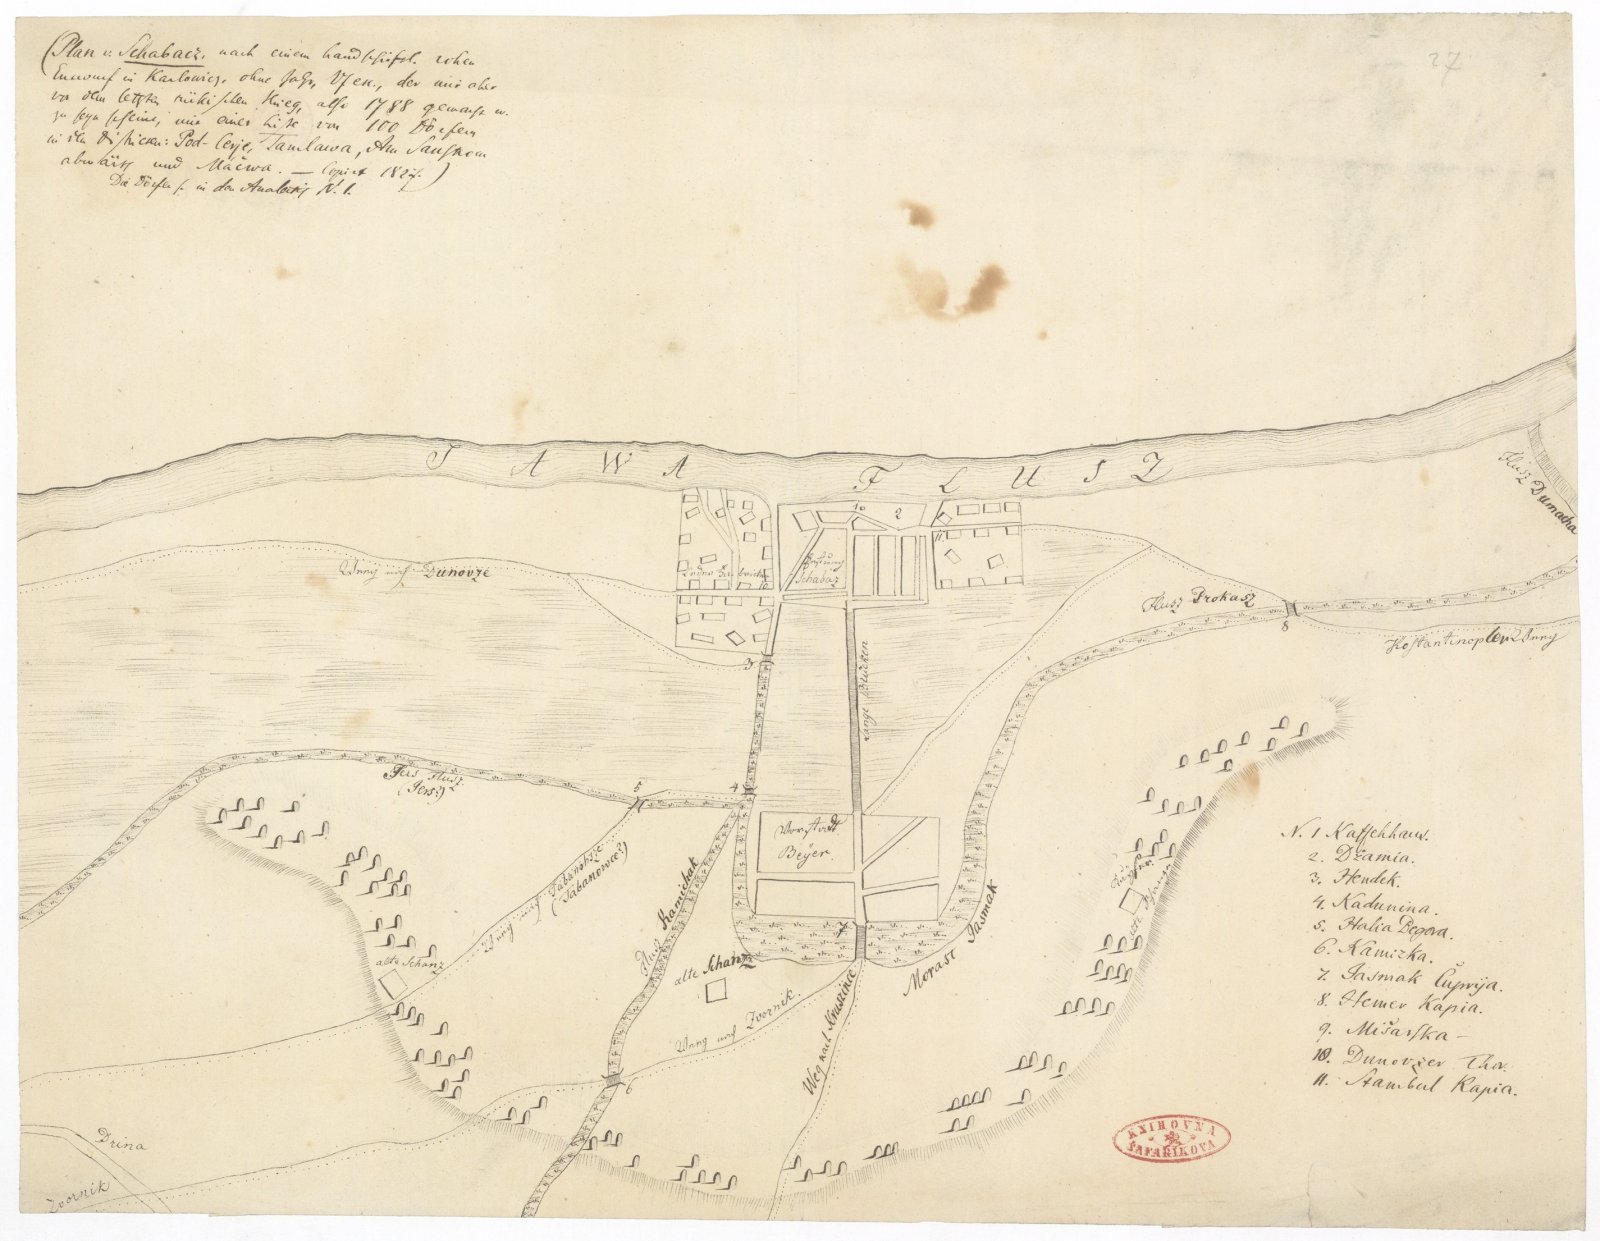 (Plan v. Schabacz, nach einem handschriftl. rohen
Entwurf in Karlowicz, ohne Jahr, der mir aber
vor dem letzten türkischen Krieg, also 1788 gemacht
zu seyn scheint, mit einer Liste von 100 Dörfern
in den Districten: Pod-Cerje, Tamlawa, Am Saustrom
abwärts und Mačwa. — Copirt 182
Die Dörfer s. in den Analecten N. 1.
27
SAWA FLUSZ
Flusz Dumatha
Weeg nach Dunovze
10
2
11
Festung
Schabaz
10
Flusz Prokasz
8
Kostantinopler Weeg
3
Lange Brücken
Jers Flusz
(Jersz)
5
4
Vorstadt
Beÿer.
Weeg nach Tabanovze
(Tabanowce?)
Flusz Kamichak
alte Schanz
alte Schanz
7
Morast Jasmak
Weeg nach Zvornik.
Weg nach Kruszince
6
Drina
Zvornik
N. 1 Kaffehhaus.
2. Džamia.
3. Hendek.
4. Kadunina.
5. Halia Begova.
6. Kamizka.
7. Jasmak Čuprija.
8. Hemer Kapia.
9. Mišarska —
10. Dunovzer Thor.
11. Stambul Kapia.
KNIHOVNA
ŠAFAŘÍKOVA